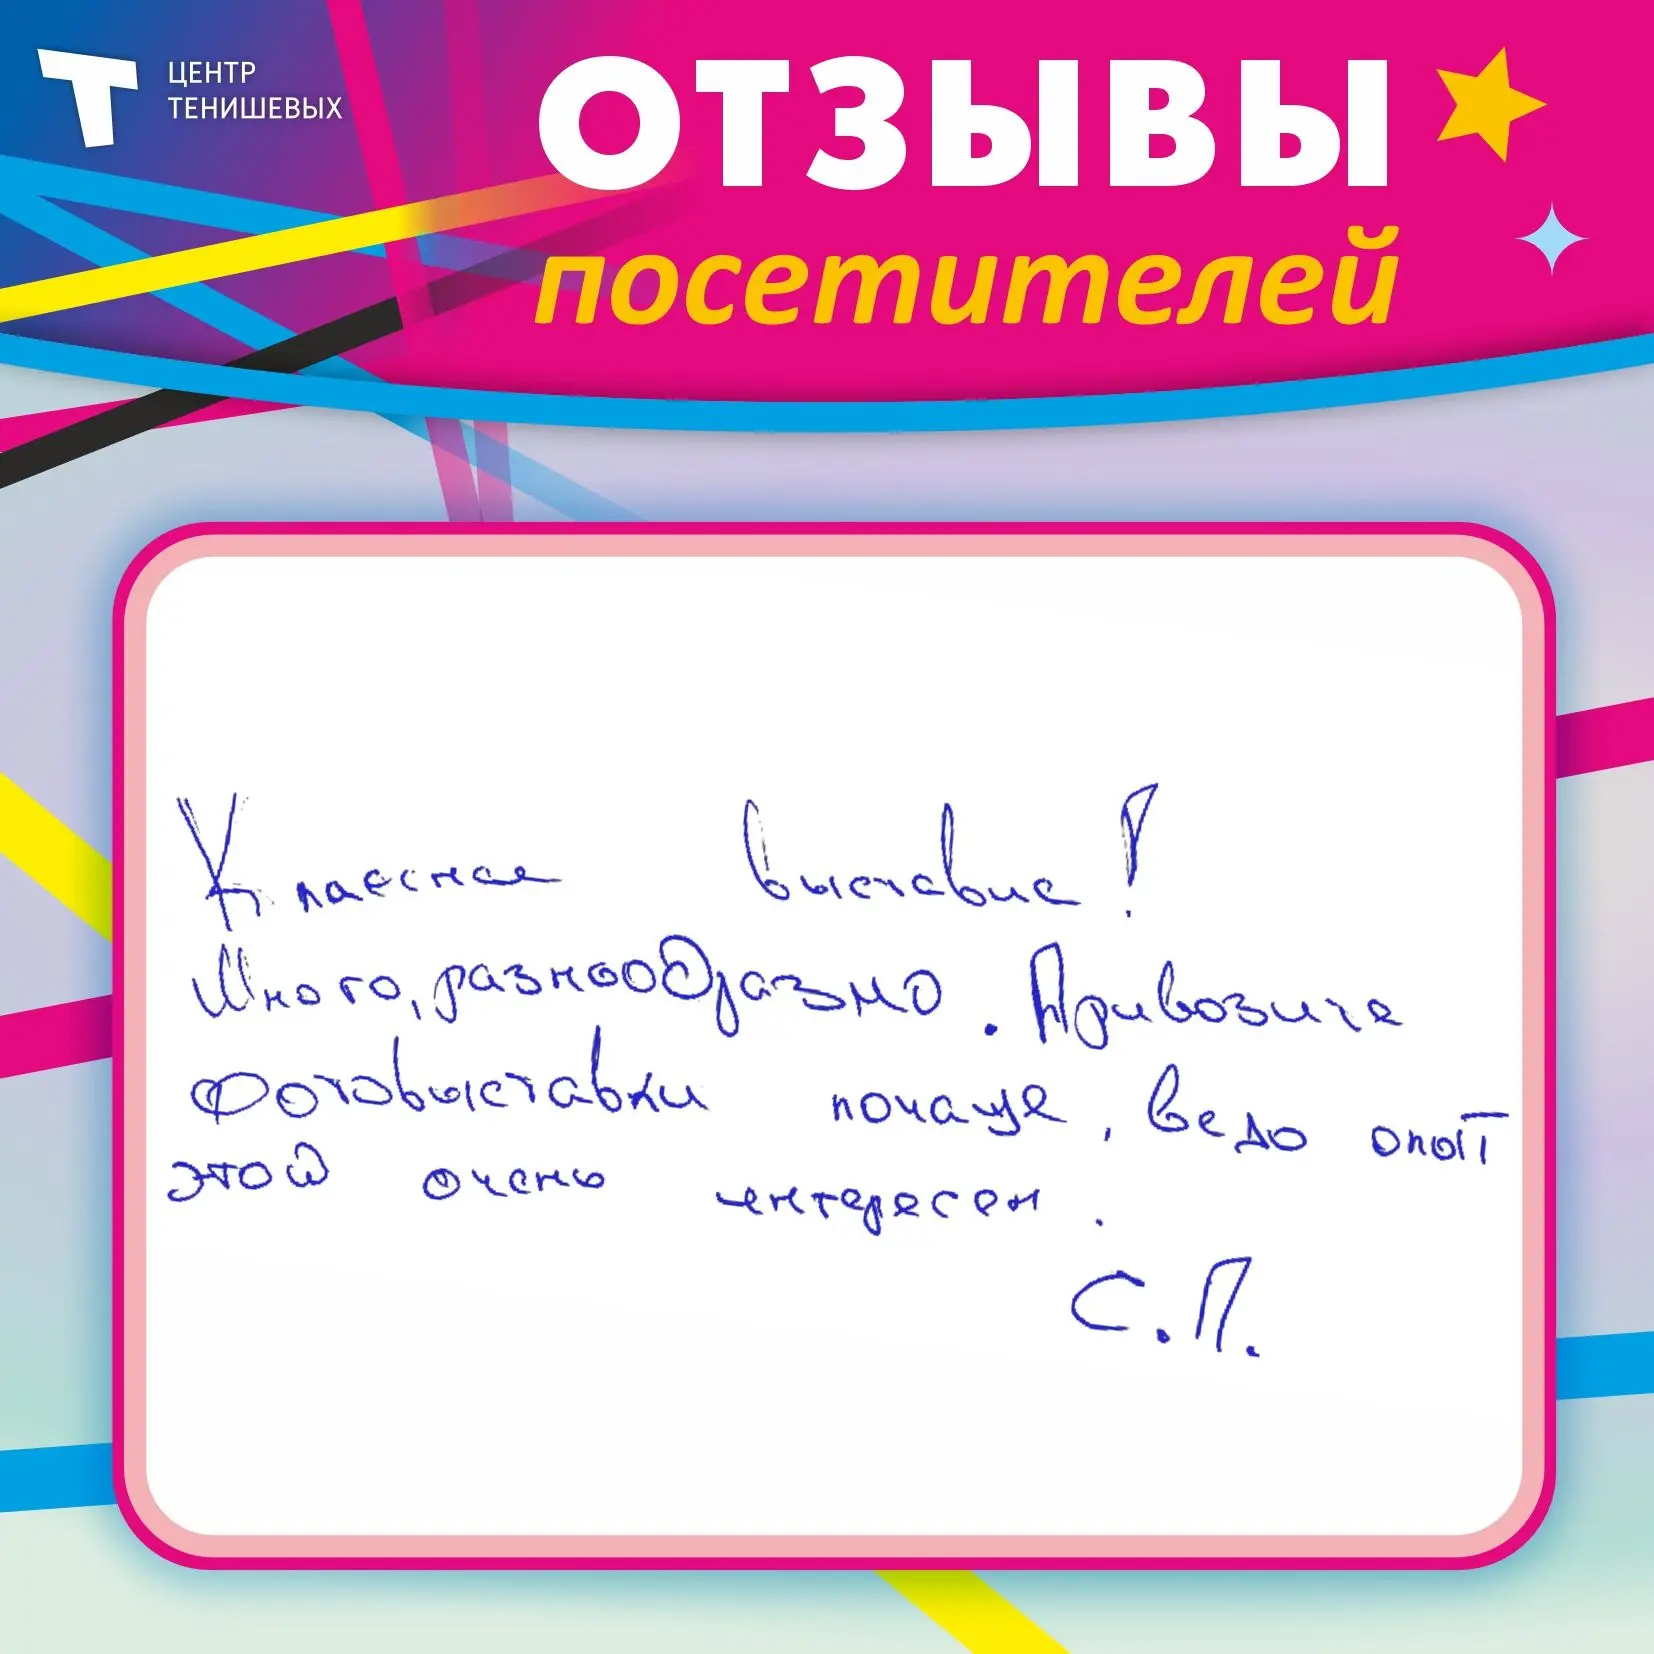 ЦЕНТР
ТЕНИШЕВЫХ
ОТЗЫВЫ
посетителей
Классная выставка!
Много, разнообразно. Привозите
фотовыставки почаще, ведь опыт
этой очень интересен.
С.П.